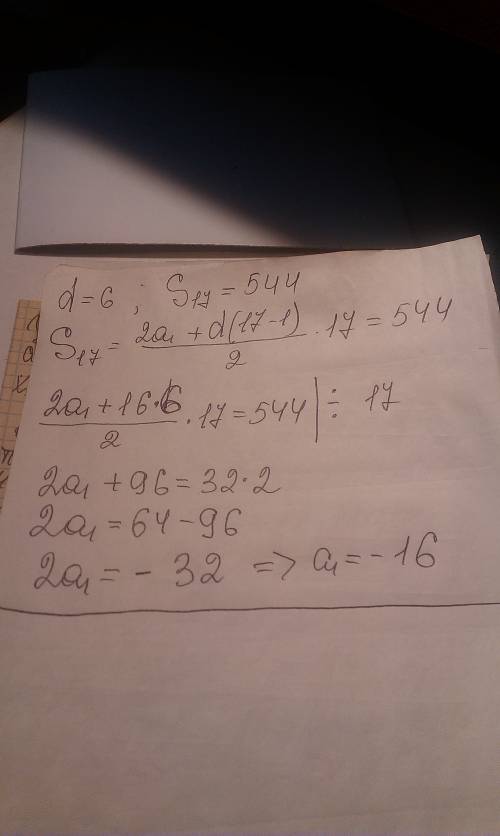 d=6 ; S₁₇=544
S₁₇= (2a₁+d(17-1))/2 · 17=544
(2a₁+16·6)/2 · 17=544 | ÷ 17
2a₁+96=32·2
2a₁=64-96
2a₁=-32 => a₁=-16